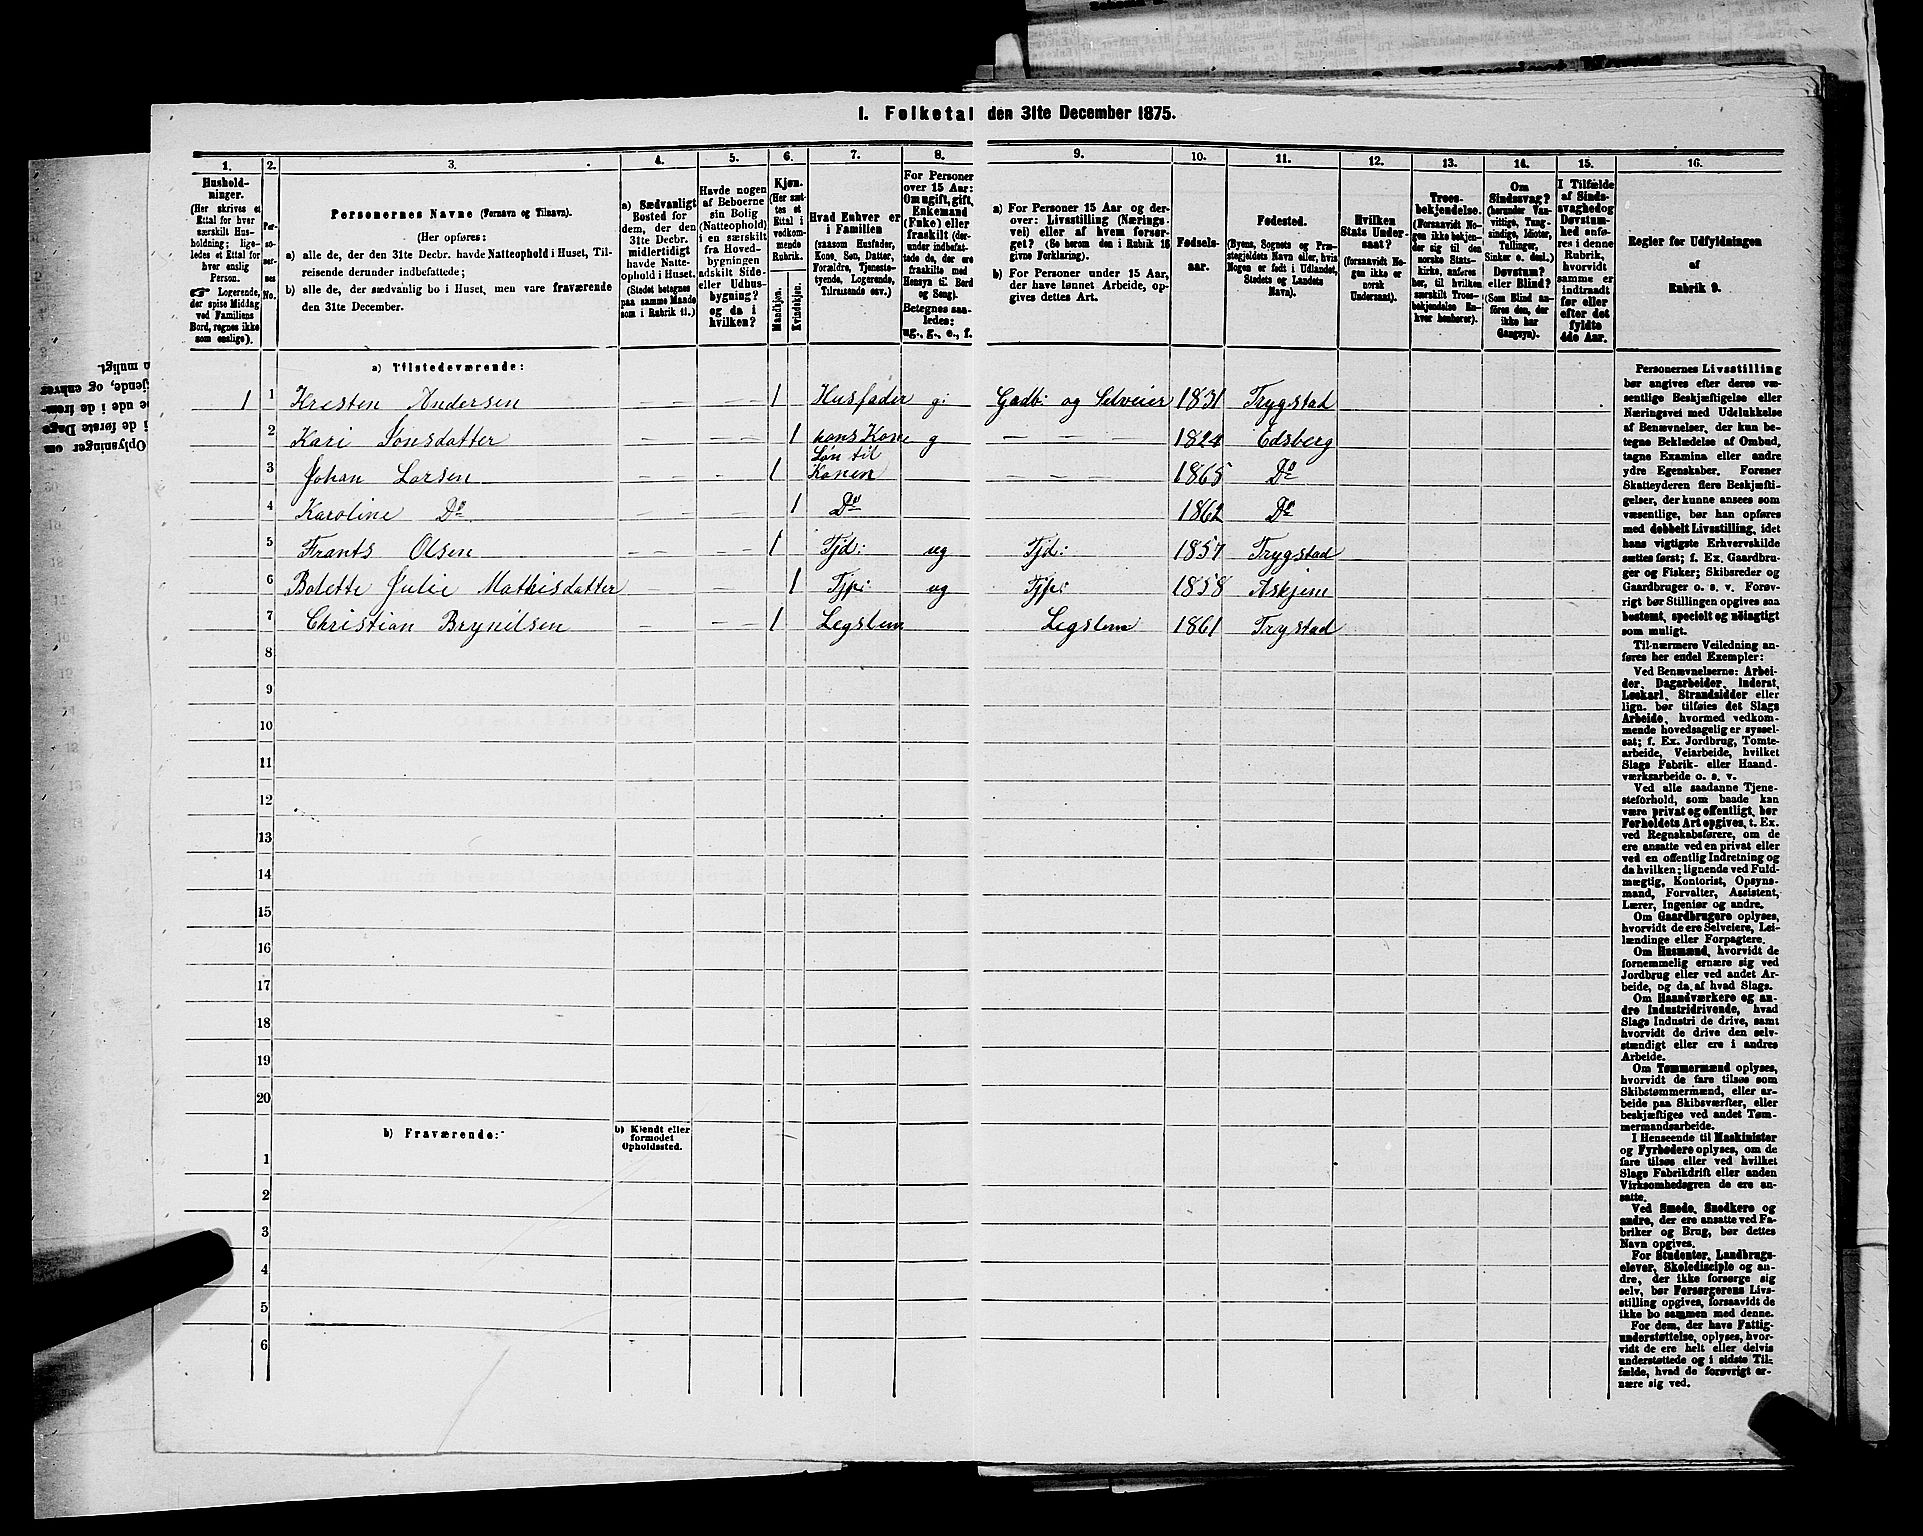 I. Folketal den 31te December 1875.
1. 2. 3. 4. 5. 6. 7. 8. 9. 10. 11. 12. 13. 14. 15. 16.
Hushold-
ninger.
(Her skrives et
Ettal for hver
særskilt Hus-
holdning; lige-
ledes et Ettal for
hver enslig
Person.
☞ Logerende,
der spise Middag
ved Familiens
Bord, regnes ikke
som enslige).
Per-
so-
ner-
nes
No.
Personernes Navne (Fornavn og Tilnavn).
(Her opføres:
a) alle de, der den 31te Decbr. havde Natteophold i Huset, Til-
reisende derunder indbefattede;
b) alle de, der sædvanlig bo i Huset, men vare fraværende
den 31te December.
a) Sædvanligt
Bosted for
dem, der den
31te Decbr.
midlertidigt
havde Natte-
ophold i Huset.
(Stedet betegnes
paa samme Maade
som i Rubrik 11.)
Havde nogen
af Beboerne
sin Bolig
(Natteophold)
i en særskilt
fra Hoved-
bygningen
adskilt Side-
eller Udhus-
bygning?
og da i
hvilken?
Kjøn.
(Her sæt-
tes et
Ettal i
vedkom-
mende
Rubrik.
Mandkjøn.
Kvindekjøn.
Hvad Enhver er
i Familien
(saasom Husfader,
Kone, Søn, Datter,
Forældre, Tjeneste-
tyende, Logerende,
Tilreisende osv.)
For Personer
over 15 Aar:
Om ugift, gift,
Enkemand
(Enke) eller
fraskilt (der-
under indbefat-
tede de, der ere
fraskilte med
Hensyn til Bord
og Seng).
Betegnes saa-
ledes:
ug., g., e., f.
a) For Personer 15 Aar og der-
over: Livsstilling (Nærings-
vei) eller af hvem forsør-
get? (Se herom den i Rubrik 16
givne Forklaring).
b) For Personer under 15 Aar,
der have lønnet Arbeide, op-
gives dettes Art.
Fødsels-
aar.
Fødested.
(Byens, Sognets og Præ-
stegjeldets Navn eller, hvis
Nogen er født i Udlandet,
Stedets og Landets
Navn).
Hvilken
Stats Under-
saat?
(forsaavidt No-
gen ikke er
norsk
Undersaat).
Troes-
bekjendelse.
(Forsaavidt No-
gen ikke bekjen-
der sig til den
norske Stats-
kirke, anføres
her, til hvilken
særskilt Troes-
bekjendelse En-
hver henhører).
Om
Sindssvag?
(herunder Van-
vittige, Tung-
sindige, Idioter,
Tullinger,
Sinker o. desl.)
Døvstum?
eller Blind?
(Som Blind an-
føres den, der
ikke har
Gangsyn).
I Tilfælde
af Sinds-
svaghed og
Døvstum-
hed anfø-
res i denne
Rubrik,
hvorvidt
samme er
indtraadt
før eller
efter det
fyldte
4de Aar.
Regler for Udfyldningen
af
Rubrik 9.
a) Tilstedeværende:
1 1 Kresten Andersen — — — — 1 Husfader g: Gadb: og Selveier 1831 Trygstad
2 Kari Jonsdatter — — — — 1 hans Kone g — — — 1824 Edsberg
3 Johan Larsen — — — — 1 Søn til Konen 1865 Do
4 Karoline Do — — — — 1 Do 1862 Do
5 Frants Olsen — — — — 1 Tjd: ug Tjd: 1857 Trygstad
6 Bolette Julie Mathisdatter — — — 1 Tjp: ug Tjp: 1858 Askjem
7 Christian Brynilsen — — — — 1 Legslem Legslem 1861 Trystad
8
9
10
11
12
13
14
15
16
17
18
19
20
b) Fraværende:
b) Kjendt eller
formodet
Opholdssted.
1
2
3
4
5
6
Personernes Livsstilling
bør angives efter deres væ-
sentlige Beskjæftigelse eller
Næringsvei med Udelukkelse
af Benævnelser, der kun be-
tegne Beklædelse af Ombud,
tagne Examina eller andre
ydre Egenskaber. Forener
Skatteyderen flere Beskjæfti-
gelser, der kunne ansees som
væsentlige, bør han opføres
med dobbelt Livsstilling, idet
hans vigtigste Erhvervskilde
sættes først; f. Ex. Gaardbru-
ger og Fisker; Skibsreder og
Gaardbruger o. s. v. Forøv-
rigt bør Stillingen opgives saa
bestemt, specielt og nøiagtigt
som muligt.
Til nærmere Veiledning an-
føres her endel Exempler:
Ved Benævnelserne: Arbei-
der, Dagarbeider, Inderst,
Løskarl, Strandsidder eller
lign. bør tilføies det Slags
Arbeide, hvormed vedkom-
mende hovedsagelig er syssel-
sat; f. Ex. Jordbrug, Tomte-
arbeide, Veiarbeide, hvilket
Slags Fabrik- eller Haand-
værksarbeide o. s. v.
Ved alle saadanne Tjene-
steforhold, som baade kan
være privat og offentligt, bør
Forholdets Art opgives, t. Ex.
ved Regnskabsførere, om de
ere ansatte ved en privat eller
ved en offentlig Indretning og
da hvilken; lignende ved Fuld-
mægtig, Kontorist, Opsyns-
mand, Forvalter, Assistent,
Lærer, Ingeniør og andre.
Om Gaardbrugere oplyses,
hvorvidt de ere Selveiere, Lei-
lændinge eller Forpagtere.
Om Husmænd, hvorvidt de
fornemmelig ernære sig ved
Jordbrug eller ved andet Ar-
beide, og da af hvad Slags.
Om Haandværkere og an-
dre Industridrivende, hvad
Slags Industri de drive, samt
hvorvidt de drive den selv-
stændigt eller ere i andres
Arbeide.
Om Tømmermænd oplyses,
hvorvidt de fare tilsøs som
Skibstømmermænd, eller ar-
beide paa Skibsværfter, eller
beskjæftiges ved andet Tøm-
mermandsarbeide.
I Henseende til Maskinister
og Fyrbødere oplyses, om de
fare tilsøs eller ved hvilket
Slags Fabrikdrift eller anden
Virksomhedsgren de ere an-
satte.
Ved Smede, Snedkere og
andre, der ere ansatte ved Fa-
briker og Brug, bør dettes
Navn opgives.
For Studenter, Landbrugs-
elever, Skoledisciple og an-
dre, der ikke forsørge sig
selv, bør Forsørgerens Livs-
stilling opgives, forsaavidt de
ikke bo sammen med denne.
For dem, der have Fattig-
understøttelse, oplyses, hvor-
vidt de ere helt eller delvis
understøttede og i sidste Til-
fælde, hvad de forøvrigt er-
nære sig ved.